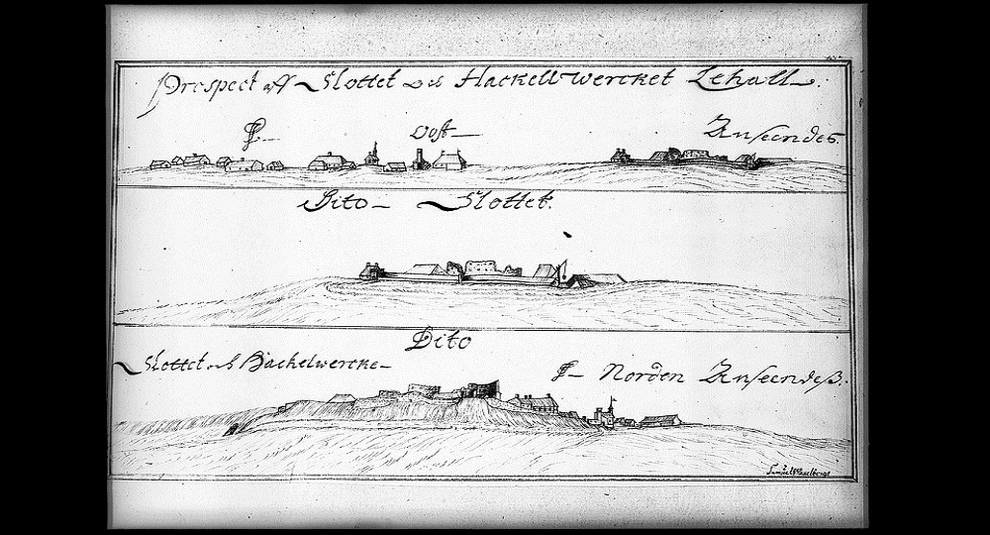 Prospect aff Slottet och Hackellwercket Lehall.
På Oost Anseendes.
Dito Slottet.
Dito
Slottet och Hackelwercke
På Norden Anseendeß.